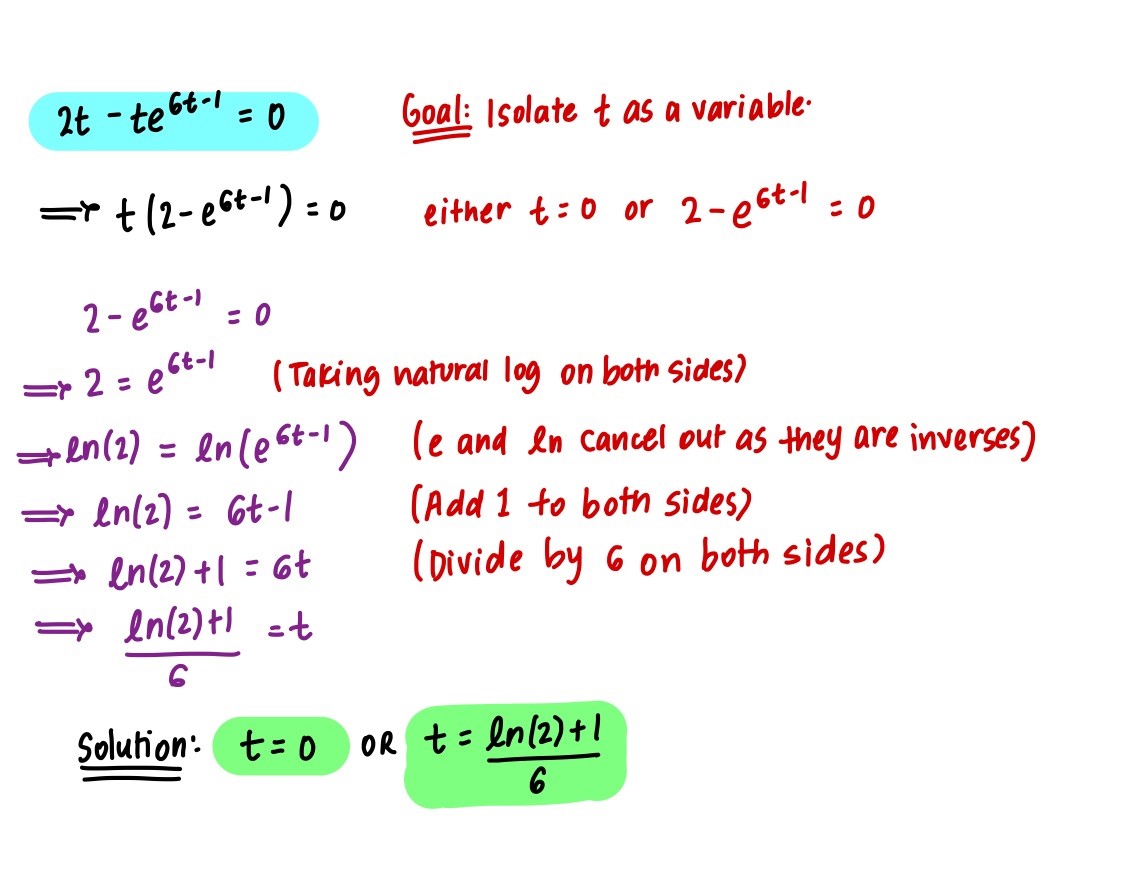 2t - te^{6t-1} = 0 Goal: Isolate t as a variable.
⟹ t(2-e^{6t-1}) = 0 either t = 0 or 2-e^{6t-1} = 0
2 - e^{6t-1} = 0
⟹ 2 = e^{6t-1} (Taking natural log on both sides)
⟹ ln(2) = ln(e^{6t-1}) (e and ln cancel out as they are inverses)
⟹ ln(2) = 6t-1 (Add 1 to both sides)
⟹ ln(2)+1 = 6t (Divide by 6 on both sides)
⟹ \frac{ln(2)+1}{6} = t
Solution: t = 0 OR t = \frac{ln(2)+1}{6}